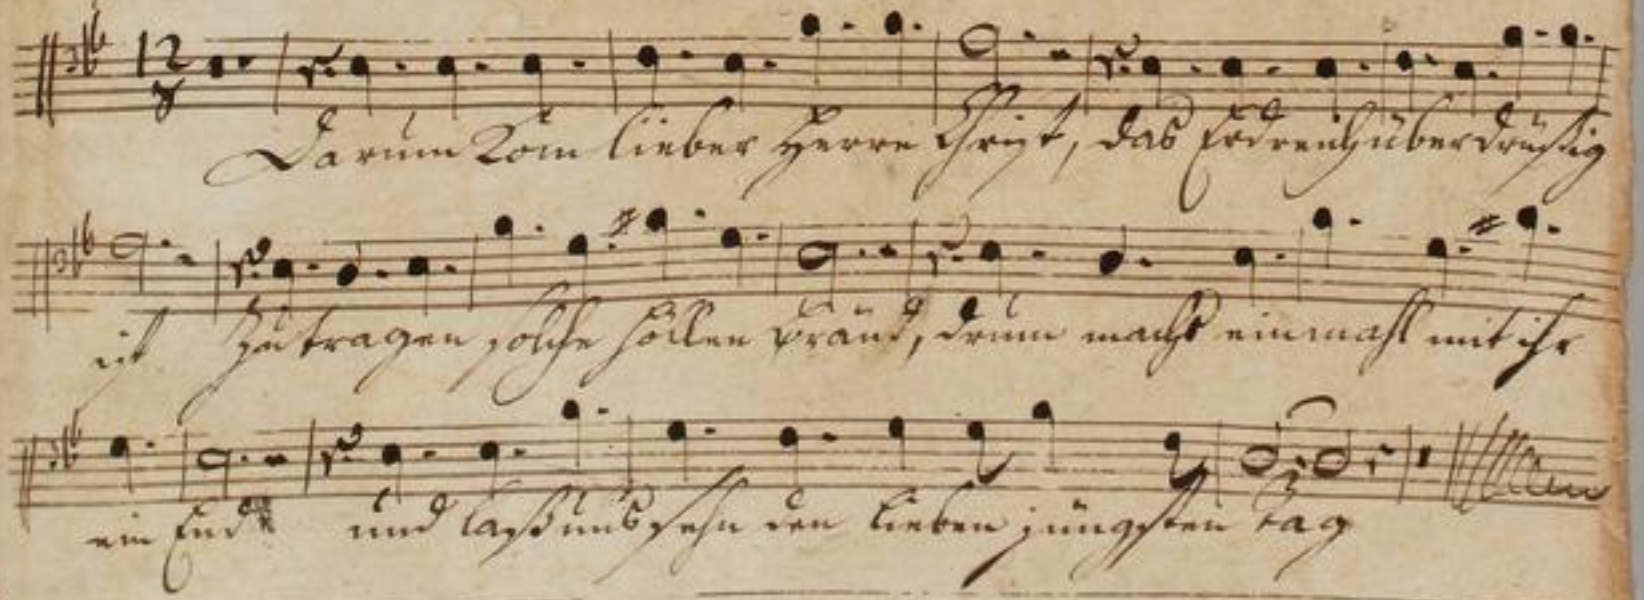 12
8
Darum Kom lieber Herre Christ, das Erdreich überdrüßig
ist Zu tragen solche Höllen Bränd, drum machs einmahl mit ihr
ein End und laß uns sehn den lieben jüngsten tag